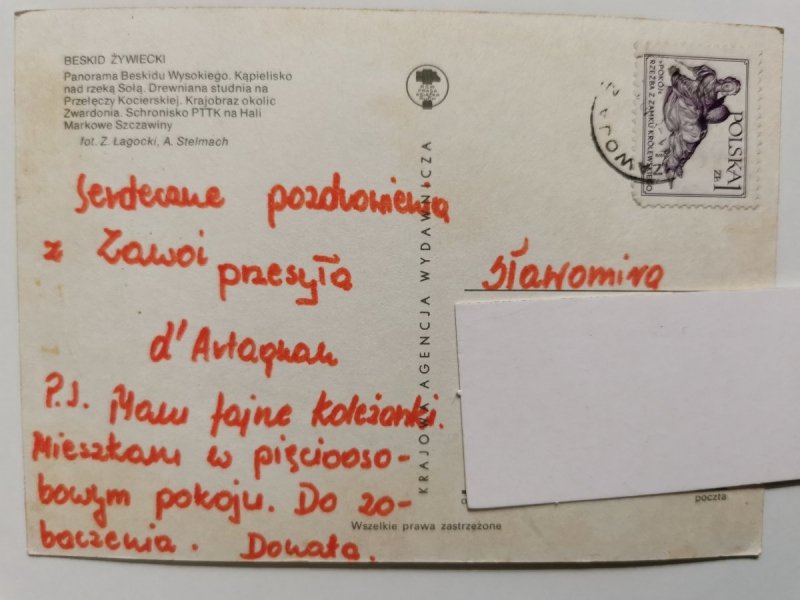 BESKID ŻYWIECKI
Panorama Beskidu Wysokiego. Kąpielisko
nad rzeką Sołą. Drewniana studnia na
Przełęczy Kocierskiej. Krajobraz okolic
Zwardonia. Schronisko PTTK na Hali
Markowe Szczawiny
fot. Z. Łagocki, A. Stelmach
Serdeczne pozdrowienia
z Zawoi
przesyła
d'Artagnan
P.S. Mam fajne koleżanki.
Mieszkam w pięcioooso-
bowym pokoju. Do zo-
baczenia. Donata.
KRAJOWA AGENCJA WYDAWNICZA
Wszelkie prawa zastrzeżone
«POKÓJ»
RZEŹBA Z ZAMKU KRÓLEWSKIEGO
POLSKA 1
ZŁ
ZAWOJA
Sławomira
poczta